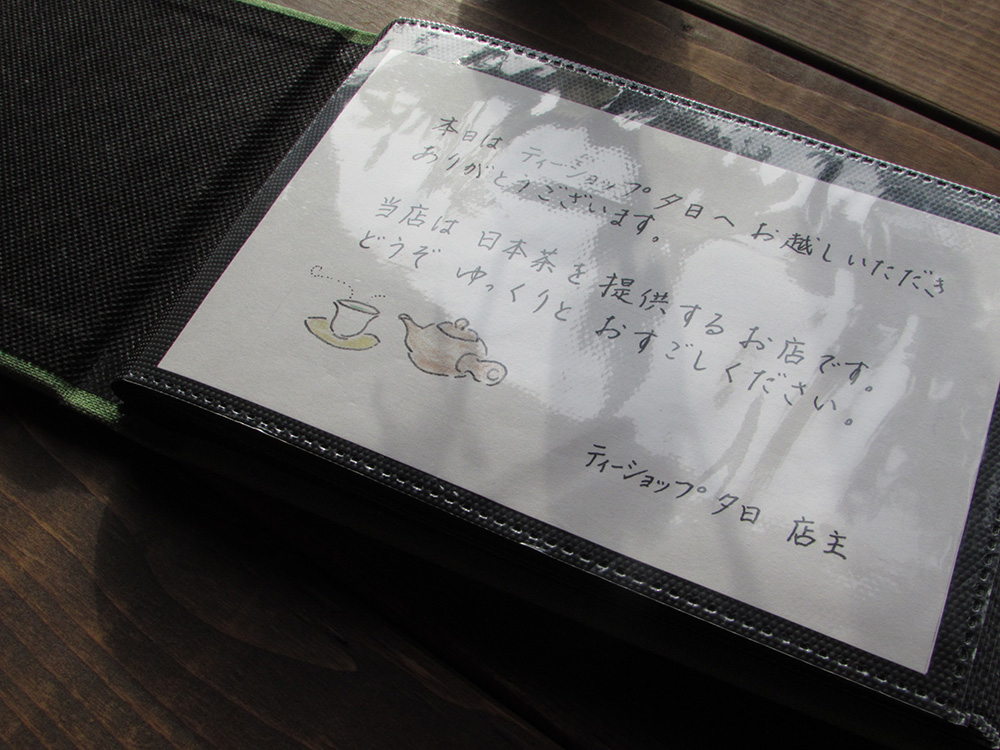 本日は ティーショップ夕日へ お越しいただき
ありがとうございます。
当店は 日本茶を 提供する お店です。
どうぞ ゆっくりと おすごしください。
ティーショップ 夕日 店主